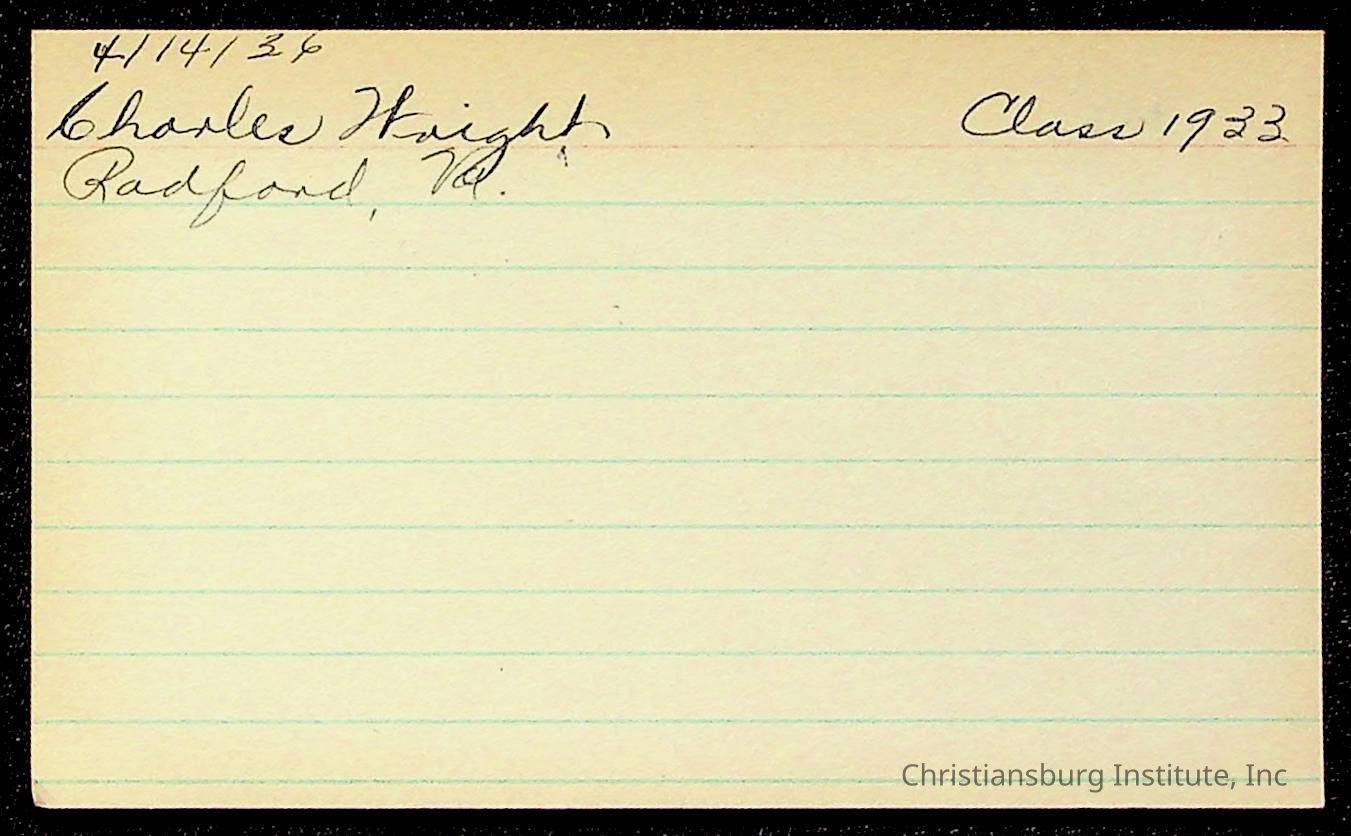 4/14/36
Charles Wright Class 1933
Radford, Va.
Christiansburg Institute, Inc